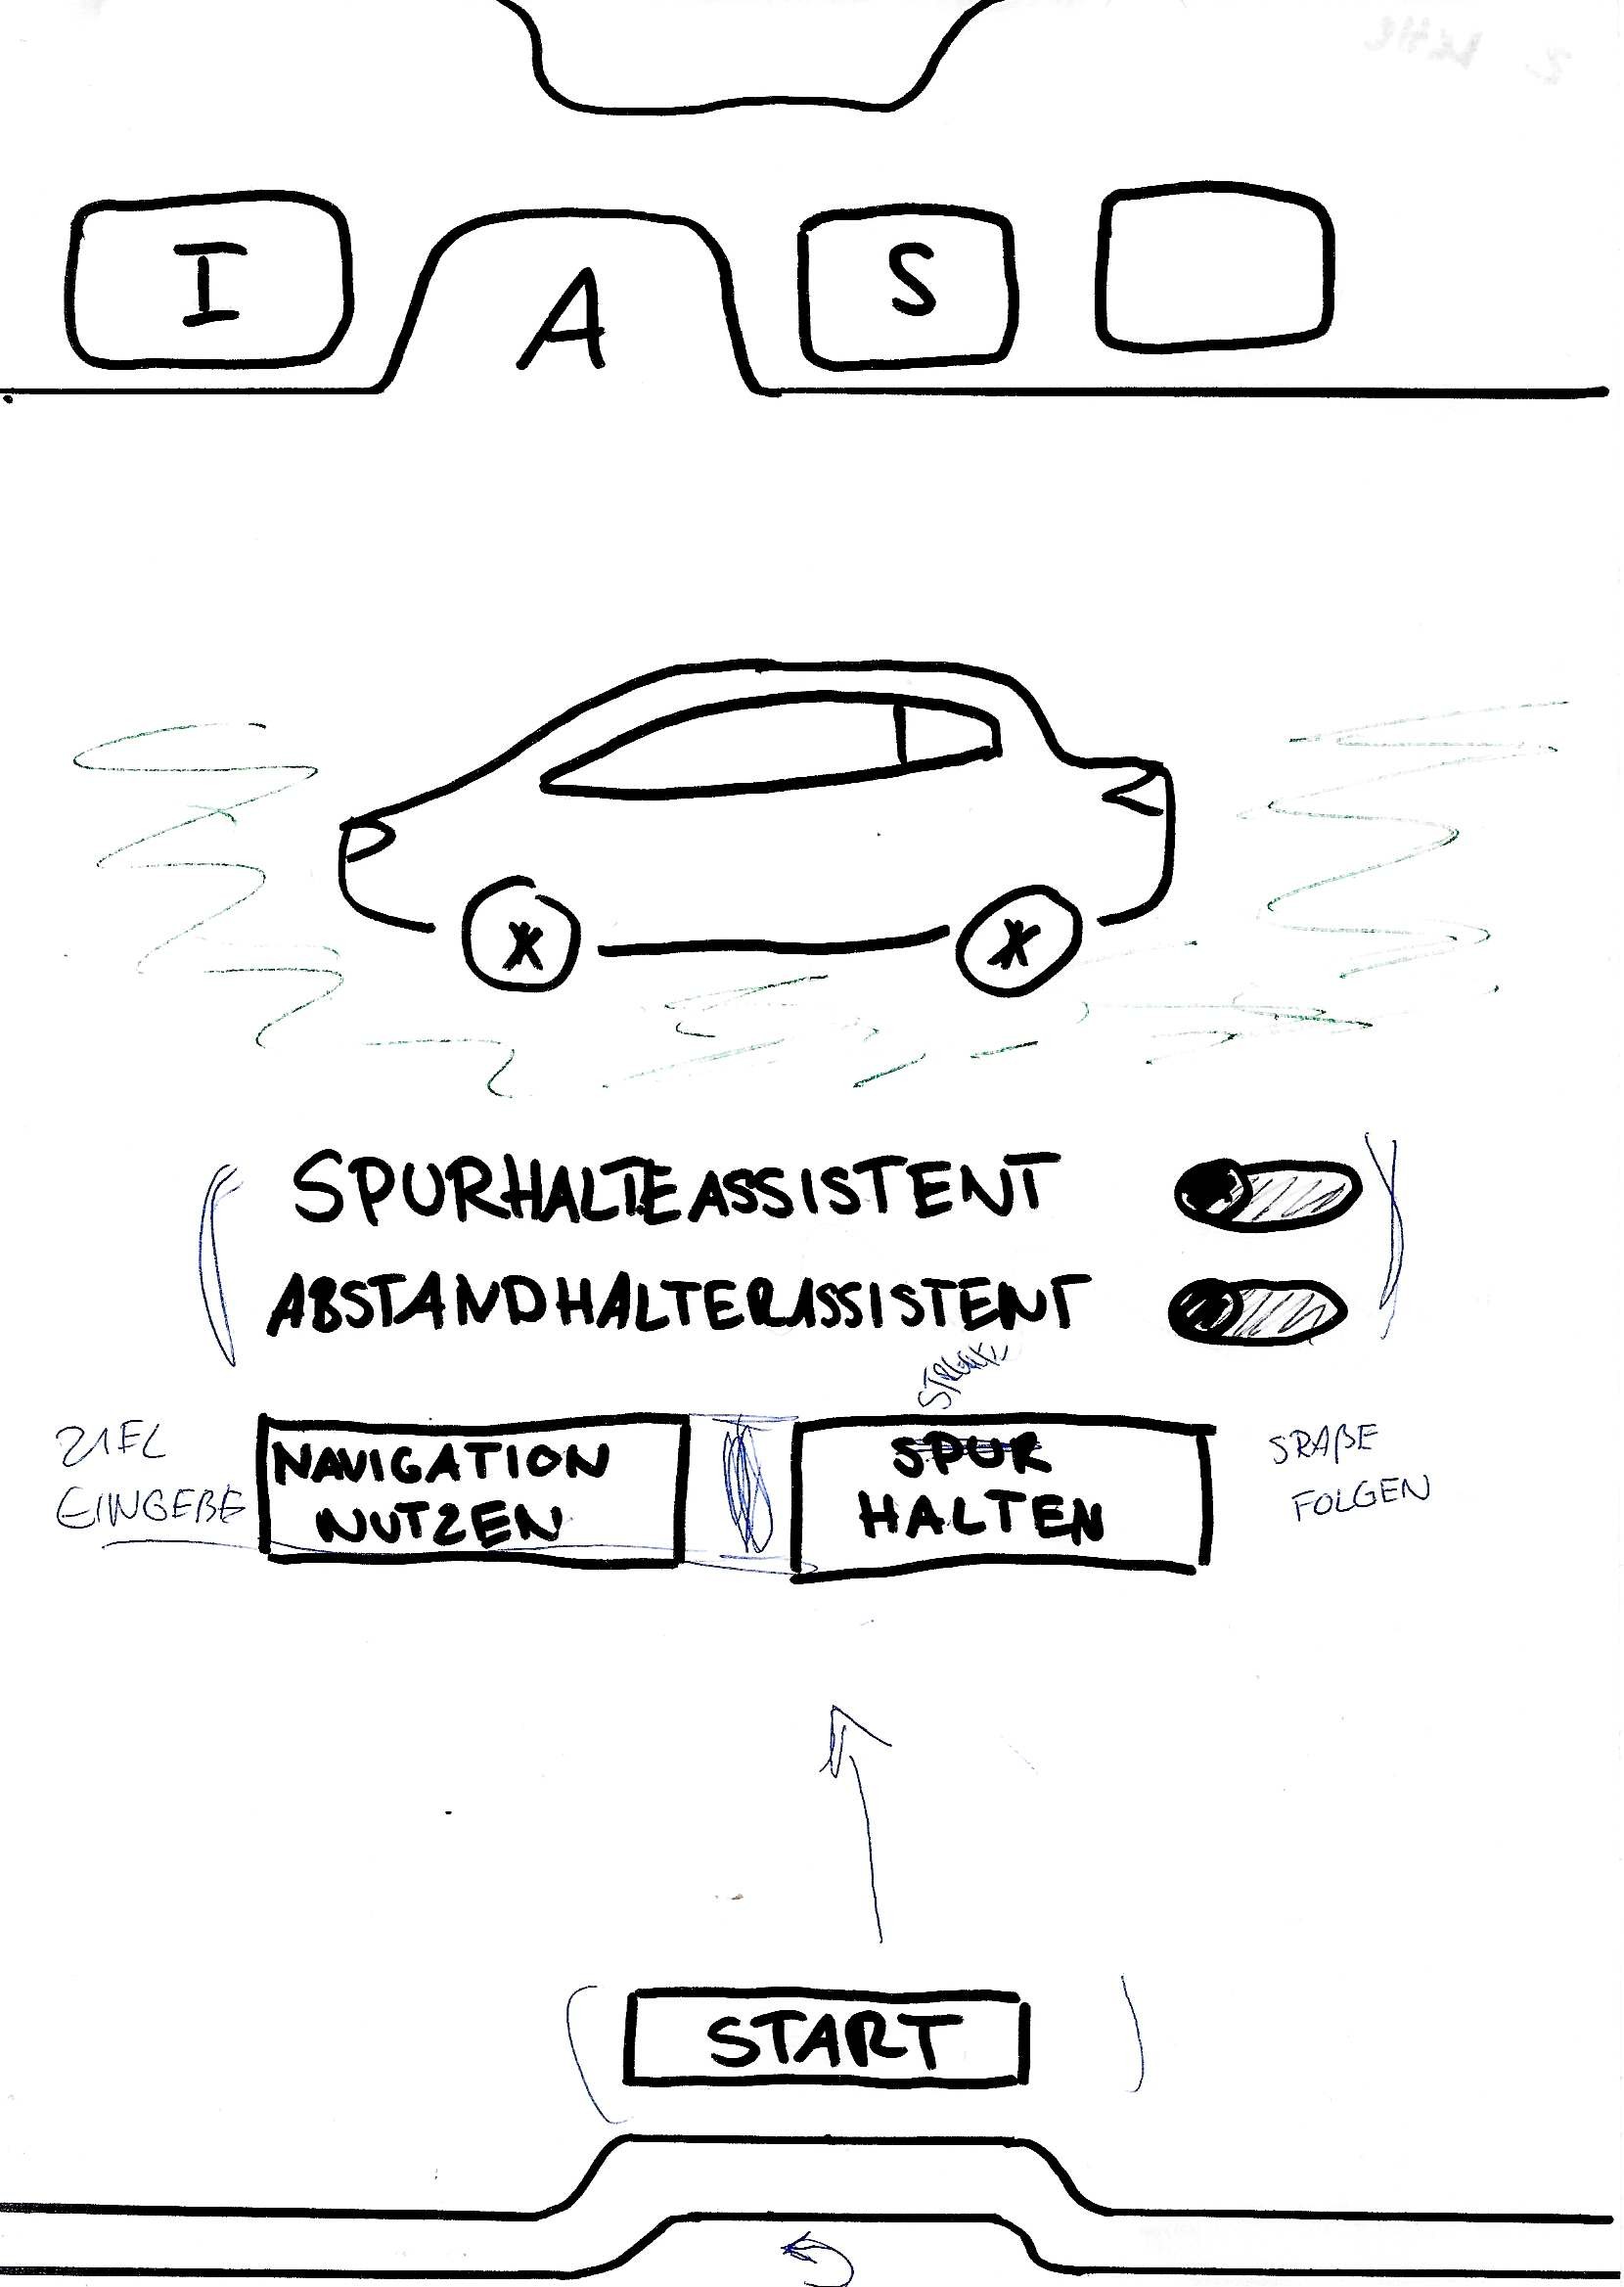 I
A
S
SPURHALTEASSISTENT
ABSTANDHALTERASSISTENT
ZIEL
EINGEBE
NAVIGATION
NUTZEN
SPUR
HALTEN
SRAßE
FOLGEN
START